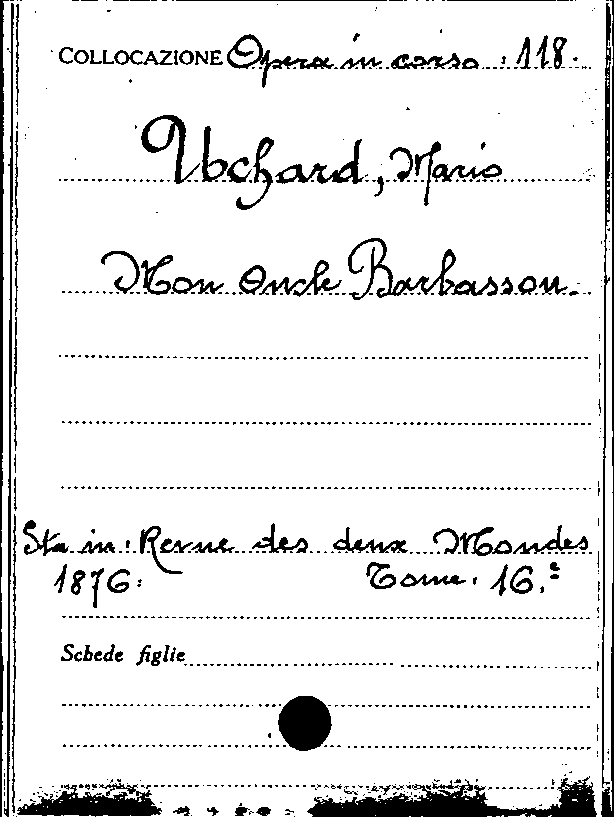 COLLOCAZIONE Opera in corso. 118.
Uchard, Mario
Mon Oncle Barbasson.
Sta in: Revue des deux Mondes
1876. Tome. 16.e
Schede figlie